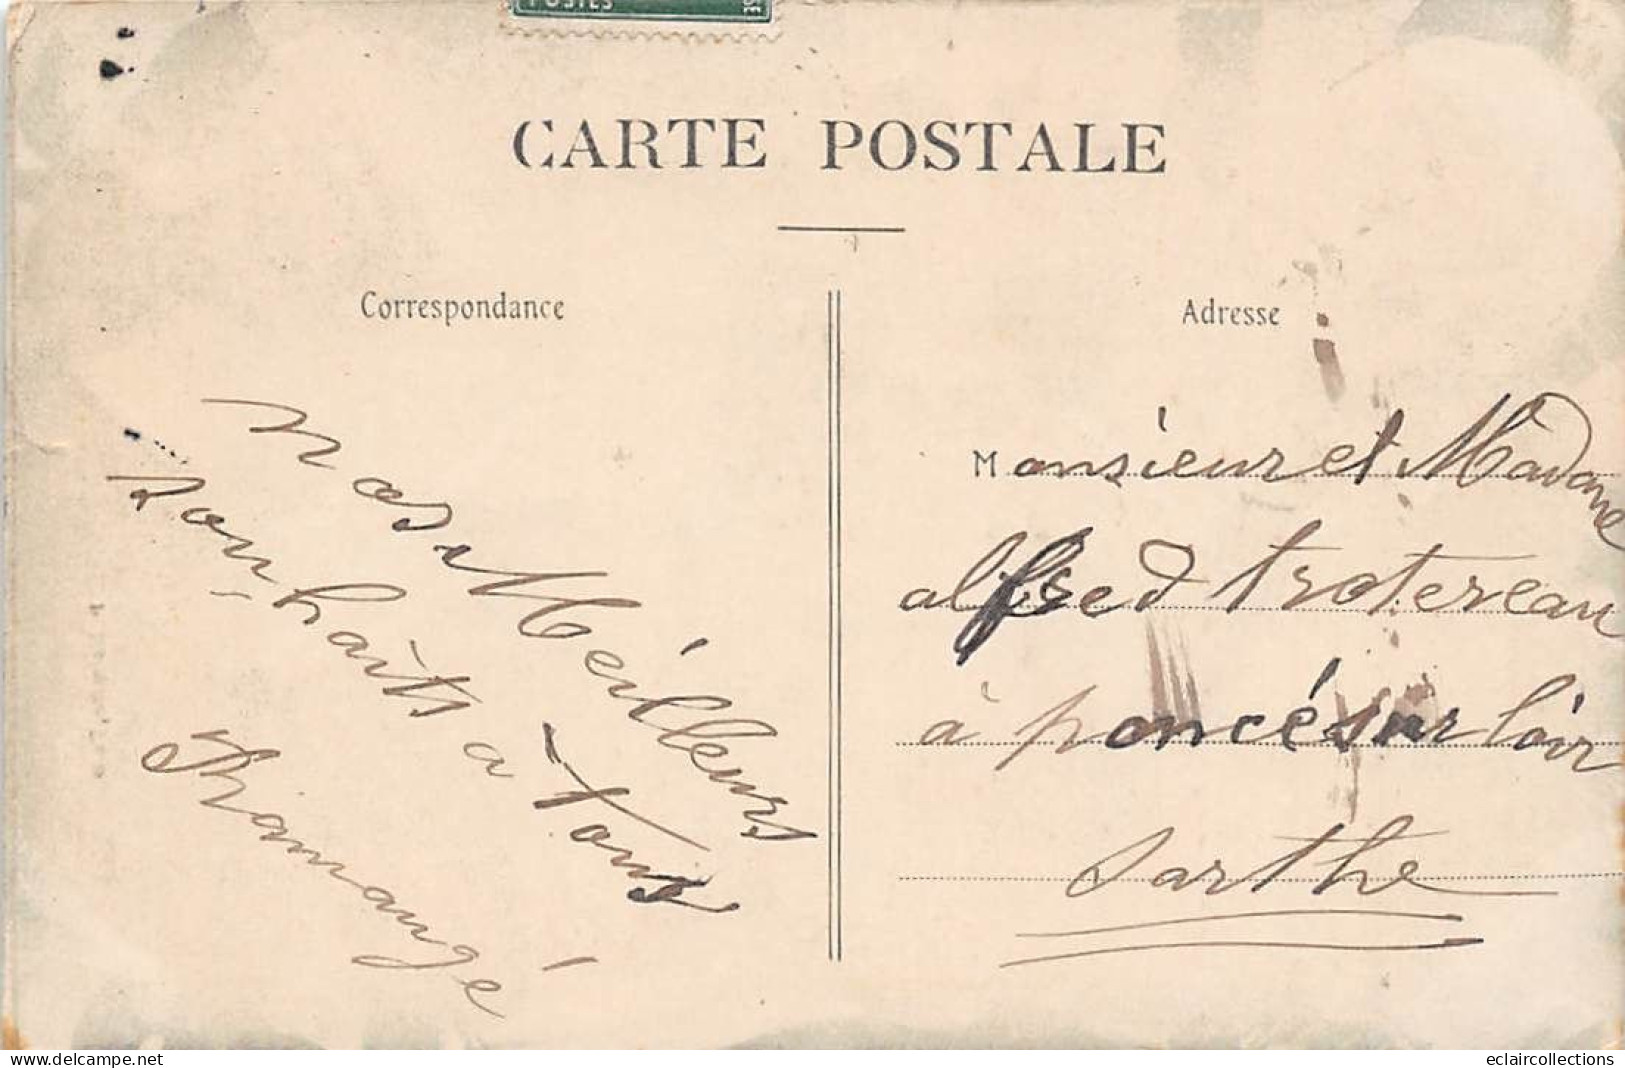 POSTES
CARTE POSTALE
Correspondance
Adresse
nos Meilleurs
souhaits a tous
Monsieur et Madame
alfred trotereau
à poncé sur loir
Sarthe
delcampe.net
eclaircollections